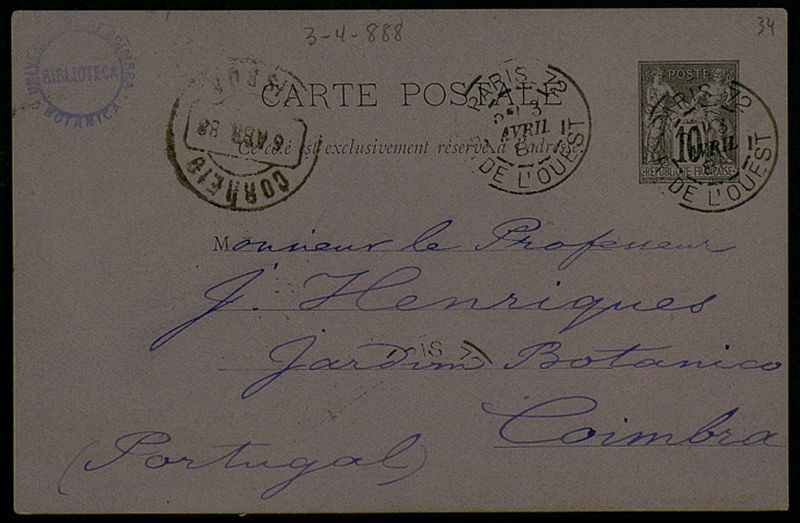 3-4-888
34
BIBLIOTECA
BOTANICA
CORREIO
6 ABR. 88
CARTE POSTALE
Ce côté est exclusivement réservé à l'adresse
PARIS 72
3
AVRIL
DE L'OUEST
POSTE
10
REPUBLIQUE FRANÇAISE
PARIS 72
AVRIL
DE L'OUEST
Monsieur le Professeur
J. Henriques
Jardim Botanico
Coimbra
(Portugal)